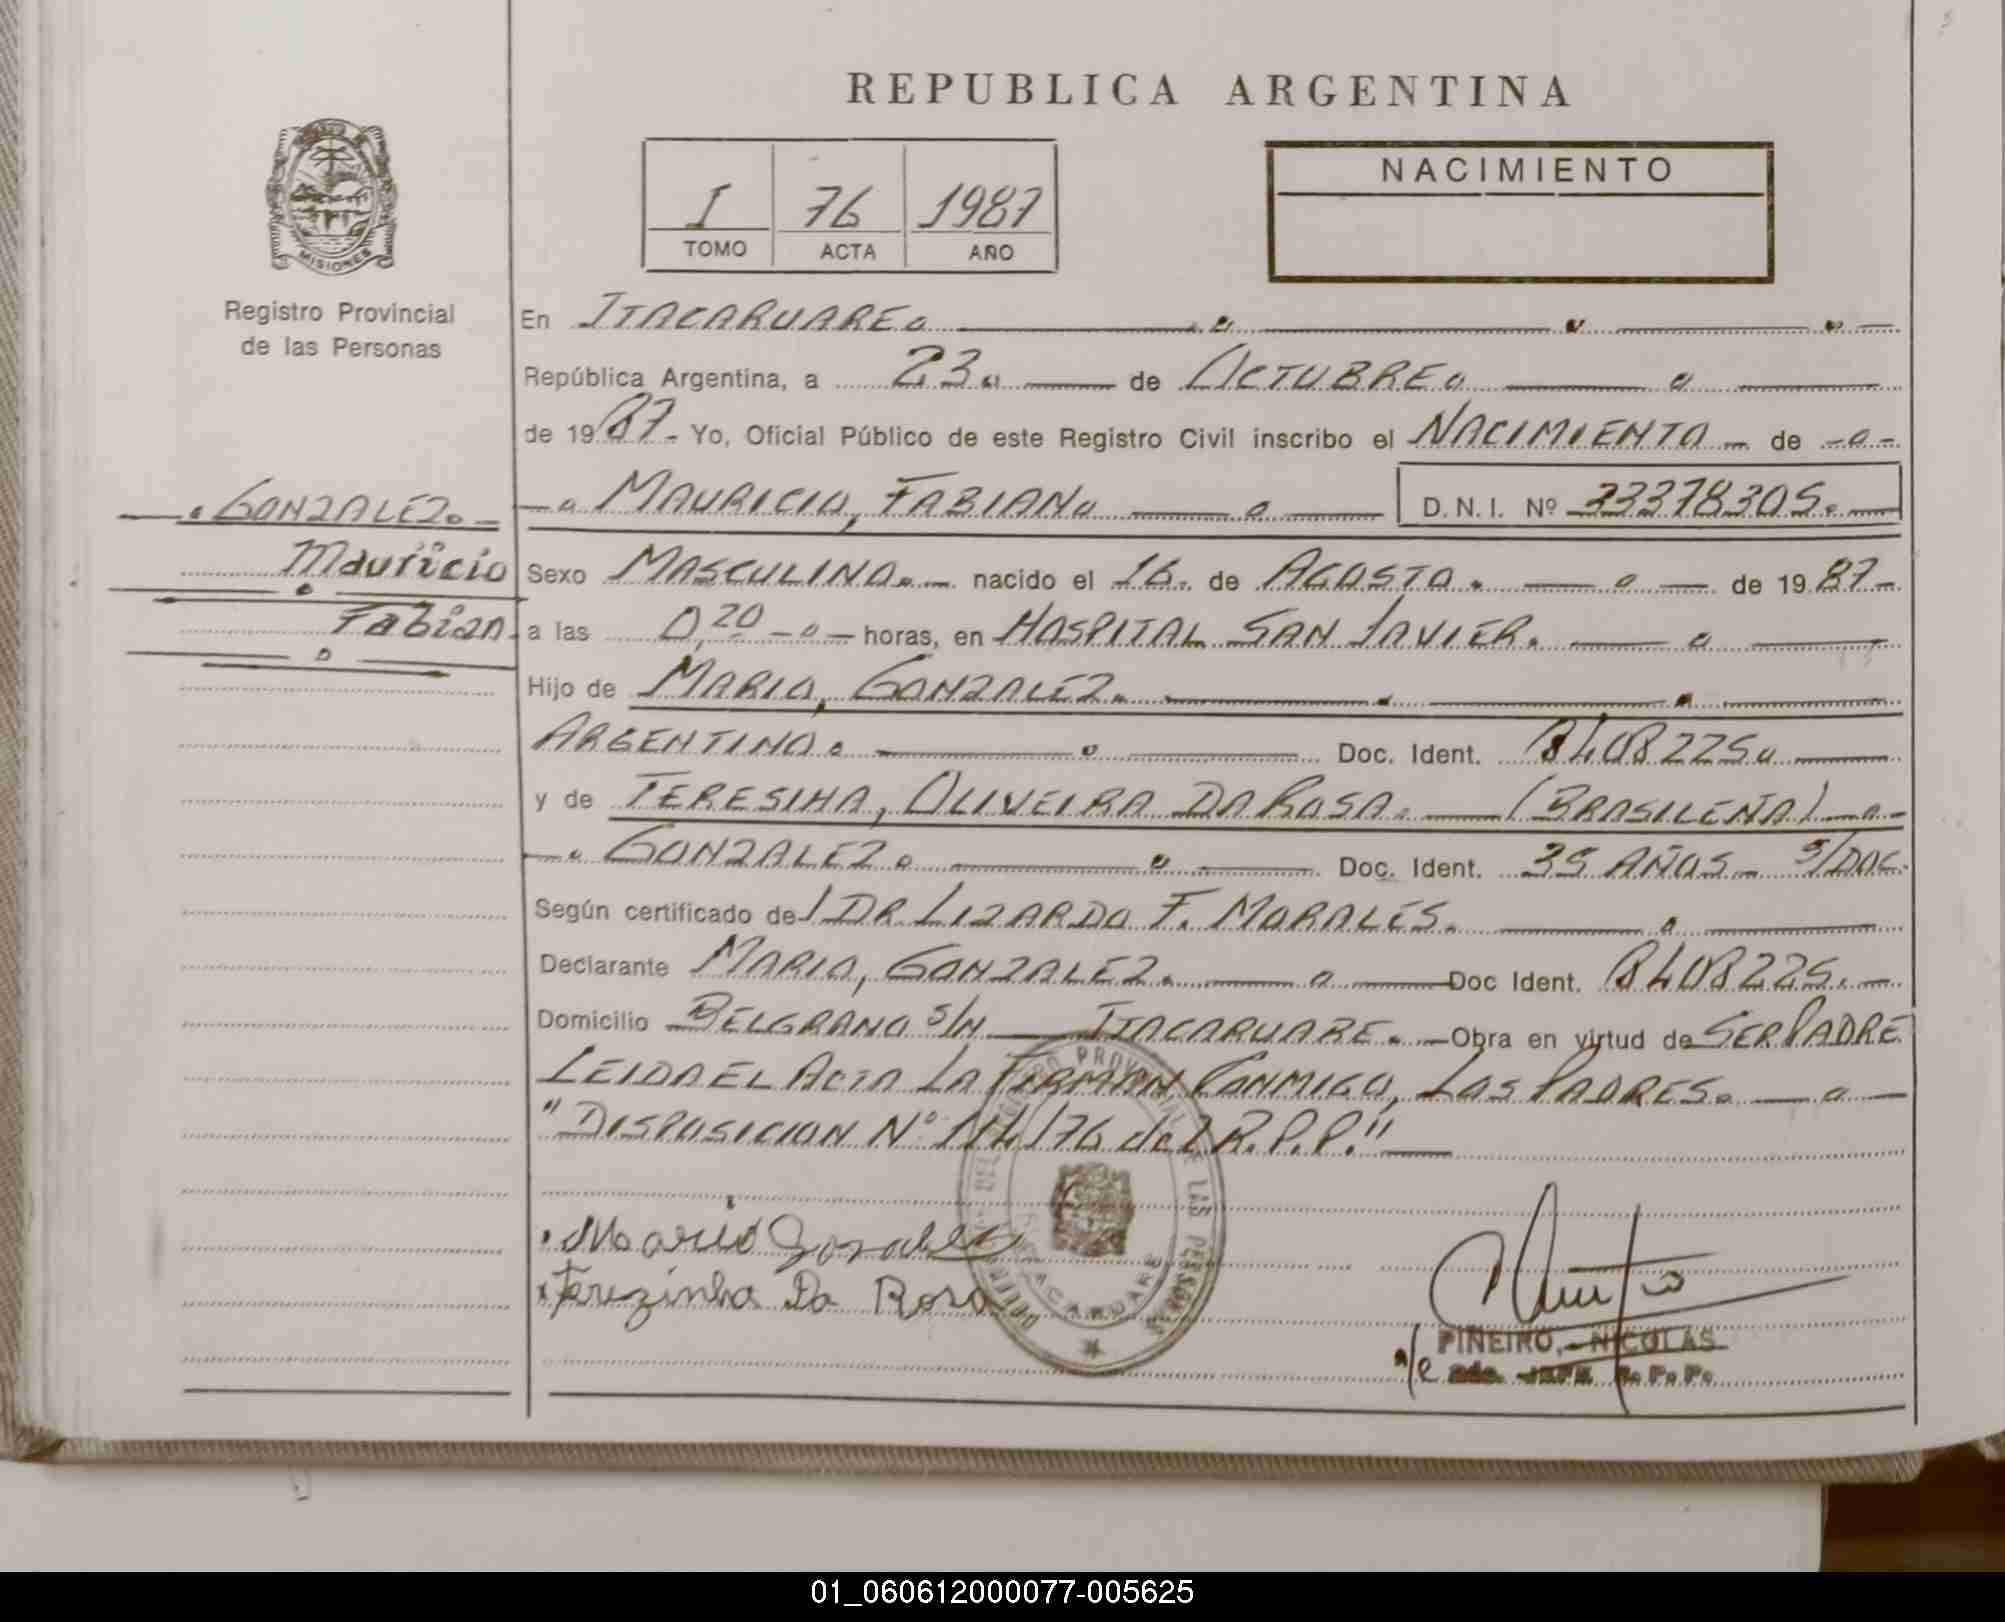 REPUBLICA ARGENTINA
MISIONES
Registro Provincial
de las Personas
I 76 1987
TOMO ACTA AÑO
NACIMIENTO
En ITACARUARE
República Argentina, a 23 de OCTUBRE
de 1987 Yo, Oficial Público de este Registro Civil inscribo el NACIMIENTO de
GONZALEZ
Mauricio
Fabian
MAURICIO, FABIAN D.N.I. Nº 33378305
Sexo MASCULINO nacido el 16 de AGOSTO de 1987
a las 0,20 horas, en HOSPITAL SAN JAVIER
Hijo de MARIO, GONZALEZ
ARGENTINO Doc. Ident. 8408225
y de TERESIHA, OLIVEIRA DA ROSA (BRASILEÑA)
GONZALEZ Doc. Ident. 35 AÑOS S/DOC.
Según certificado del DR LIZARDO F. MORALES
Declarante MARIO, GONZALEZ Doc Ident. 8408225
Domicilio BELGRANO S/N ITACARUARE Obra en virtud de SER PADRE
LEIDA EL ACTA LA FIRMAN CONMIGO, LOS PADRES
"DISPOSICION Nº 114/76 del R.P.P."
Mario Gonzalez
Terezinha Da Rosa
REGISTRO PROVINCIAL DE LAS PERSONAS
ITACARUARE
PIÑEIRO, NICOLAS
a/c JEFE R.P.P.
01_060612000077-005625